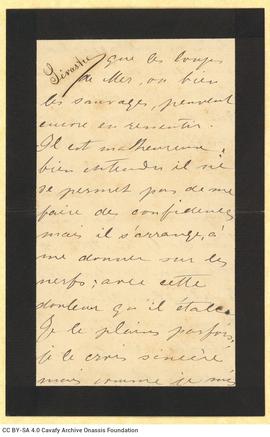 que les loups
de Mer, ou bien
les sauvages, peuvent
encore en ressentir.
Il est malheureux,
bien entendu il ne
se permet pas de me
faire des confidences
mais il s'arrange, à
me donner sur les
nerfs; avec cette
douleur qu'il étale.
Je le plains parfois,
Je le crois sincère
mais comme je me
CC BY-SA 4.0 Cavafy Archive Onassis Foundation